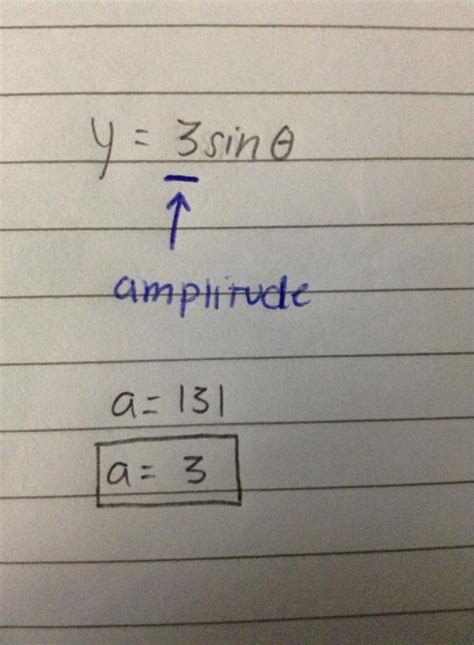 y = 3sinθ
amplitude
a = |3|
a = 3